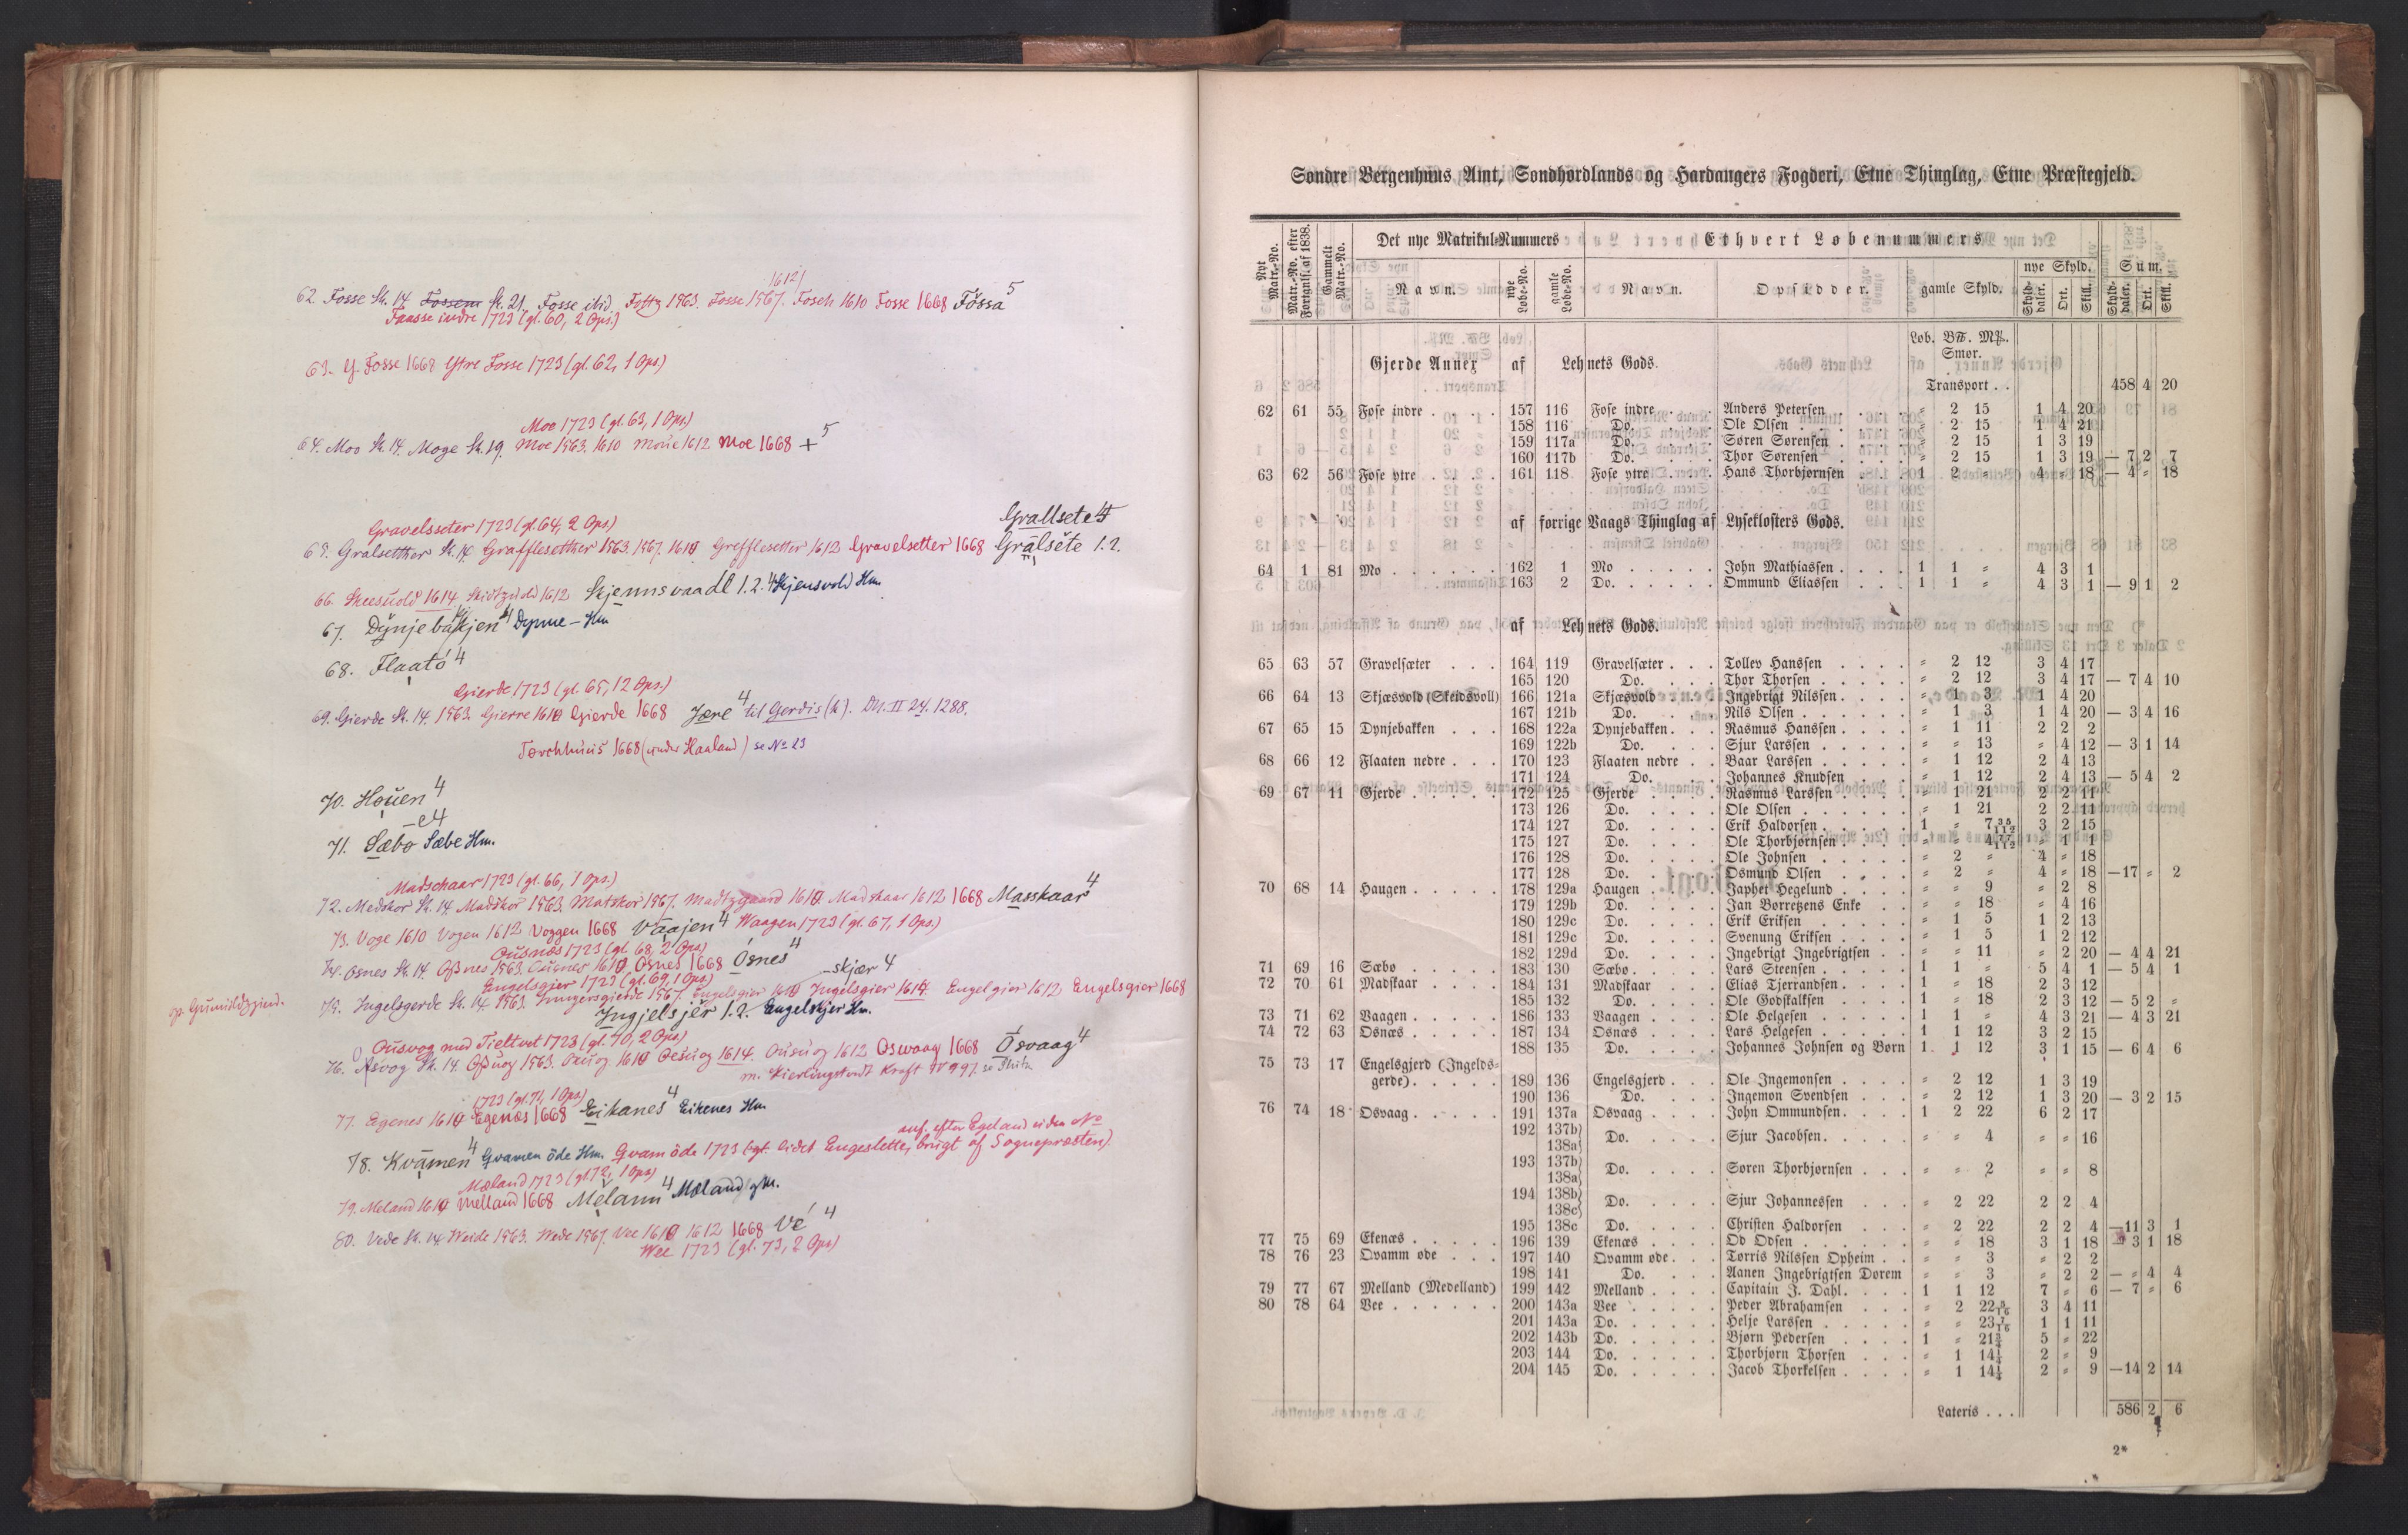 62. Fosse Sk. 14 Fossem Sk. 21, Fosse ibid. 1563. Fosse 1567. Fosch 1610 |1612| Fosse 1668 Fössa 5
Faasse indre 1723 (gl. 60, 2 Ops.)
63. Y. Fosse 1668 Ytre Fosse 1723 (gl. 62, 1 Ops.)
Moe 1723 (gl. 63, 1 Ops.)
64. Moo Sk. 14. Moge Sk. 19. Moe 1563. 1610 Moue 1612 Moe 1668 + 5
Gravelsseter 1723 (gl. 64, 2 Ops.)
Grallsete 4
65. Gralsetther Sk. 14. Grafflesetther 1563. 1567. 1610 Grefflesetter 1612 Gravelsetter 1668 Grälsete 1.2.
66. Skeesuold 1614, 1612 Skjennsvaadl 1.2. 4 Skjensvold Hm.
67. Dynjebakjen 4 Dynne- Hm
68. Flaato 4
Gierde 1723 (gl. 65, 12 Ops.)
69. Gierde Sk. 14. 1563. Gierre 1610 Gierde 1668 Jære 4 til Gerdis (k). DN. II 24. 1288.
Torchhuus 1668 (under Haaland) se No 23
70. Houen 4
-e 4
71. Sæbø Sæbe Hm.
Madschaar 1723 (gl. 66, 1 Ops.)
72. Medskor Sk. 14. Madskor 1563. Matskor 1567. Madtzgaard 1610 Madskaar 1612 1668 Masskaar 4
73. Voge 1610 Vogen 1612 Voggen 1668 Vaajen 4 Waagen 1723 (gl. 67, 1 Ops.)
Ousnæs 1723 (gl. 68, 2 Ops)
74. Osnes Sk. 14 Ossnes 1563. Ousnes 1610. Osnes 1668 Ósnes 4
Engelsgier 1723 (gl. 69, 1 Ops)
-skjær 4
75. Ingelsgerde Sk. 14. 1563. 1567. Engelsgier 1610 Ingelsgier 1614. Engelgier 1612 Engelsgier 1668
Ingjelsjér 1.2. Engelskjer Hm.
Ousvog med Tieltvet 1723 (gl. 70, 2 Ops)
76. Asvog Sk. 14. Ossuog 1563. Ouuog 1610 Oesuog 1614. Ousuog 1612 Oswaag 1668 Ósvaag 4
m. Kierlingstvedt Kraft IV 997.
1723 (gl. 71, 1 Ops)
77. Egenes 1610 Egenæs 1668 Eikanes 4 Eikenes Hm.
anf. efter Egeland uden No
78. Kvåmen 4 Qvamen öde Hm. Qvam öde 1723 (gl. lidet Engeslette, brugt af Sognepræsten).
Mæland 1723 (gl. 72, 1 Ops)
79. Meland 1610 Melland 1668 Melann 4 Mæland gm.
80. Vede Sk. 14. Weide 1563. Wede 1567. Vee 1610 1612 1668 Vé 4
Wee 1723 (gl. 73, 2 Ops)
Søndre Bergenhuus Amt, Søndhordlands og Hardangers Fogderi, Etne Thinglag, Etne Præstegjeld.
Nyt Matr.-No. Matr.-No. efter Fortegnls. af 1838. Gammelt Matr.-No. Det nye Matrikul-Nummers Ethvert Løbenummers
Navn. nye Løbe-No. gamle Løbe-No. Navn. Opsidder. gamle Skyld. nye Skyld. Sum.
Skyld-daler. Ort. Skill. Skyld-daler. Ort. Skill.
Løb. B℔. M℔.
Smør.
Gjerde Annex af Lehnets Gods.
Transport . . 458 4 20
62 61 55 Fose indre . . . . 157 116 Fose indre . . . Anders Petersen . . . . „ 2 15 1 4 20
158 116 Do. . . . Ole Olsen . . . . „ 2 15 1 4 21
159 117a Do. . . . Søren Sørensen . . . . „ 2 15 1 3 19
160 117b Do. . . . Thor Sørensen . . . . „ 2 15 1 3 19 — 7 2 7
63 62 56 Fose ytre . . . . 161 118 Fose ytre . . . Hans Thorbjørnsen . . 1 2 „ 4 „ 18 — 4 „ 18
af forrige Vaags Thinglag af Lyseklosters Gods.
64 1 81 Mo . . . . . . 162 1 Mo . . . . . John Mathiassen . . . . 1 1 „ 4 3 1
163 2 Do. . . . . . Ommund Eliassen . . . 1 1 „ 4 3 1 — 9 1 2
af Lehnets Gods.
65 63 57 Gravelsæter . . . 164 119 Gravelsæter . . . Tollev Hanssen . . . . „ 2 12 3 4 17
165 120 Do. . . . Thor Thorsen . . . . . „ 2 12 3 4 17 — 7 4 10
66 64 13 Skjæsvold (Skeidsvoll) 166 121a Skjæsvold . . . Ingebrigt Nilssen. . . . „ 1 3 1 4 20
167 121b Do. . . . Nils Olsen . . . . . . „ 1 3 1 4 20 — 3 4 16
67 65 15 Dynjebakken . . . 168 122a Dynjebakken. . . Rasmus Hanssen. . . . „ 1 11 2 2 2
169 122b Do. . . . Sjur Larssen . . . . . „ „ 13 „ 4 12 — 3 1 14
68 66 12 Flaaten nedre . . . 170 123 Flaaten nedre . . Baar Larssen . . . . . „ 1 12 2 4 13
171 124 Do. . . Johannes Knudsen . . . „ 1 12 2 4 13 — 5 4 2
69 67 11 Gjerde . . . . . 172 125 Gjerde . . . . Rasmus Larssen . . . . „ 1 21 2 2 11
173 126 Do. . . . . Ole Olsen . . . . . . „ 1 21 2 2 11
174 127 Do. . . . . Erik Haldorsen . . . . . 1 „ 7 35/112 3 2 15
175 127 Do. . . . . Ole Thorbjørnsen . . . . „ „ 4 77/112 „ 1 1
176 128 Do. . . . . Ole Johnsen . . . . . „ 2 „ 4 „ 18
177 128 Do. . . . . Osmund Olsen . . . . „ 2 „ 4 „ 18 — 17 „ 2
70 68 14 Haugen . . . . . 178 129a Haugen . . . . Japhet Hegelund . . . . „ „ 9 „ 2 8
179 129b Do. . . . . Jan Børretzens Enke . . „ „ 18 „ 4 16
180 129c Do. . . . . Erik Eriksen . . . . . „ 1 5 1 2 13
181 129c Do. . . . . Svenung Eriksen . . . . „ 1 5 1 2 12
182 129d Do. . . . . Ingebrigt Ingebrigtsen . . „ „ 11 „ 2 20 — 4 4 21
71 69 16 Sæbø . . . . . 183 130 Sæbø . . . . . Lars Steensen . . . . . 1 1 „ 5 4 1 — 5 4 1
72 70 61 Madskaar . . . . 184 131 Madskaar . . . Elias Tjerrandsen. . . . 1 „ 18 2 3 12
185 132 Do. . . . . Ole Godskalksen . . . 1 „ 18 2 3 12 — 5 2 „
73 71 62 Vaagen . . . . . 186 133 Vaagen . . . . Ole Helgesen . . . . . 1 1 „ 4 3 21 — 4 3 21
74 72 63 Osnæs . . . . . 187 134 Osnæs . . . . Lars Helgesen . . . . . 1 1 12 3 2 15
188 135 Do. . . . . Johannes Johnsen og Børn 1 1 12 3 1 15 — 6 4 6
75 73 17 Engelsgjerd (Ingelds-
gerde) . . . . . 189 136 Engelsgjerd . . . Ole Ingemonsen . . . . „ 2 12 1 3 19
190 136 Do. . . . Ingemon Svendsen . . . „ 2 12 1 3 20 — 3 2 15
76 74 18 Osvaag . . . . . 191 137a Osvaag . . . . John Ommundsen. . . . 1 2 22 6 2 17
192 137b} 138a} Do. . . . . Sjur Jacobsen. . . . . „ „ 4 „ „ 16
193 137b} 138a} Do. . . . . Søren Thorbjørnsen . . . „ „ 2 „ „ 8
194 138b} 138c} Do. . . . . Sjur Johannessen . . . „ 2 22 2 2 4
195 138c Do. . . . . Christen Haldorsen . . . „ 2 22 2 2 4 — 11 3 1
77 75 69 Ekenæs . . . . . 196 139 Ekenæs . . . . Od Odsen . . . . . . „ „ 18 3 1 18 — 3 1 18
78 76 23 Qvamm øde . . . 197 140 Qvamm øde. . . Torris Nilssen Opheim . . „ „ 3 „ 2 2
198 141 Do. . . . Aanen Ingebrigtsen Dørem „ „ 3 „ 2 2 — „ 4 4
79 77 67 Melland (Medelland) 199 142 Melland . . . . Capitain J. Dahl. . . . 1 1 12 7 „ 6 — 7 „ 6
80 78 64 Vee . . . . . . 200 143a Vee . . . . . Peder Abrahamsen . . . „ 2 22 5/16 3 4 11
201 143a Do. . . . . . Helje Larssen . . . . . „ „ 23 7/16 1 1 11
202 143b Do. . . . . . Bjørn Pedersen . . . . 1 „ 21 3/4 5 „ 22
203 144 Do. . . . . . Thorbjørn Thorsen . . . „ 1 14 1/4 2 „ 9
204 145 Do. . . . . . Jacob Thorkelsen . . . . „ 1 14 1/4 2 „ 9 — 14 2 14
Lateris . . . 586 2 6
2*